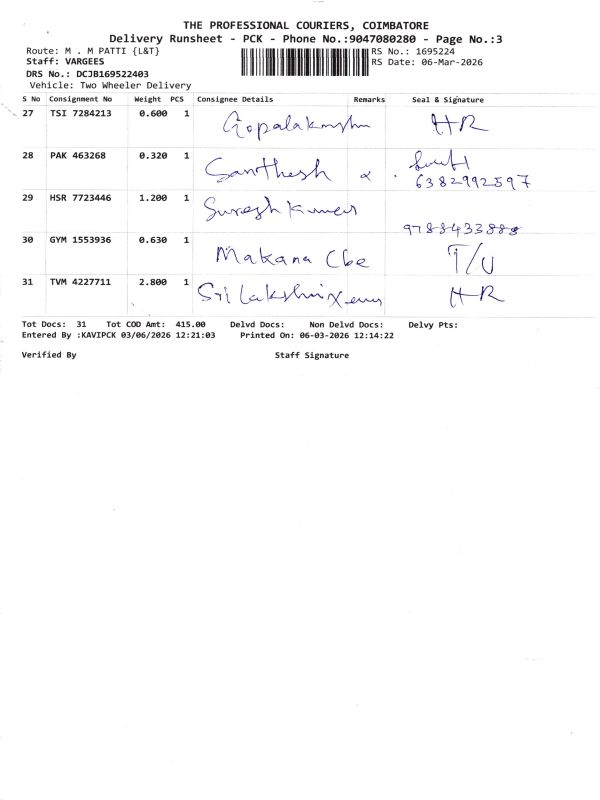 THE PROFESSIONAL COURIERS, COIMBATORE
Delivery Runsheet - PCK - Phone No.:9047080280 - Page No.:3
Route: M . M PATTI {L&T} RS No.: 1695224
Staff: VARGEES RS Date: 06-Mar-2026
DRS No.: DCJB169522403
Vehicle: Two Wheeler Delivery
S No Consignment No Weight PCS Consignee Details Remarks Seal & Signature
27 TSI 7284213 0.600 1 Gopalakrishn HR
28 PAK 463268 0.320 1 Santhesh
6382992597
29 HSR 7723446 1.200 1 Suresh Kumar
9788433888
30 GYM 1553936 0.630 1 Makana Cbe T/U
31 TVM 4227711 2.800 1 HR
Tot Docs: 31 Tot COD Amt: 415.00 Delvd Docs: Non Delvd Docs: Delvy Pts:
Entered By :KAVIPCK 03/06/2026 12:21:03 Printed On: 06-03-2026 12:14:22
Verified By Staff Signature